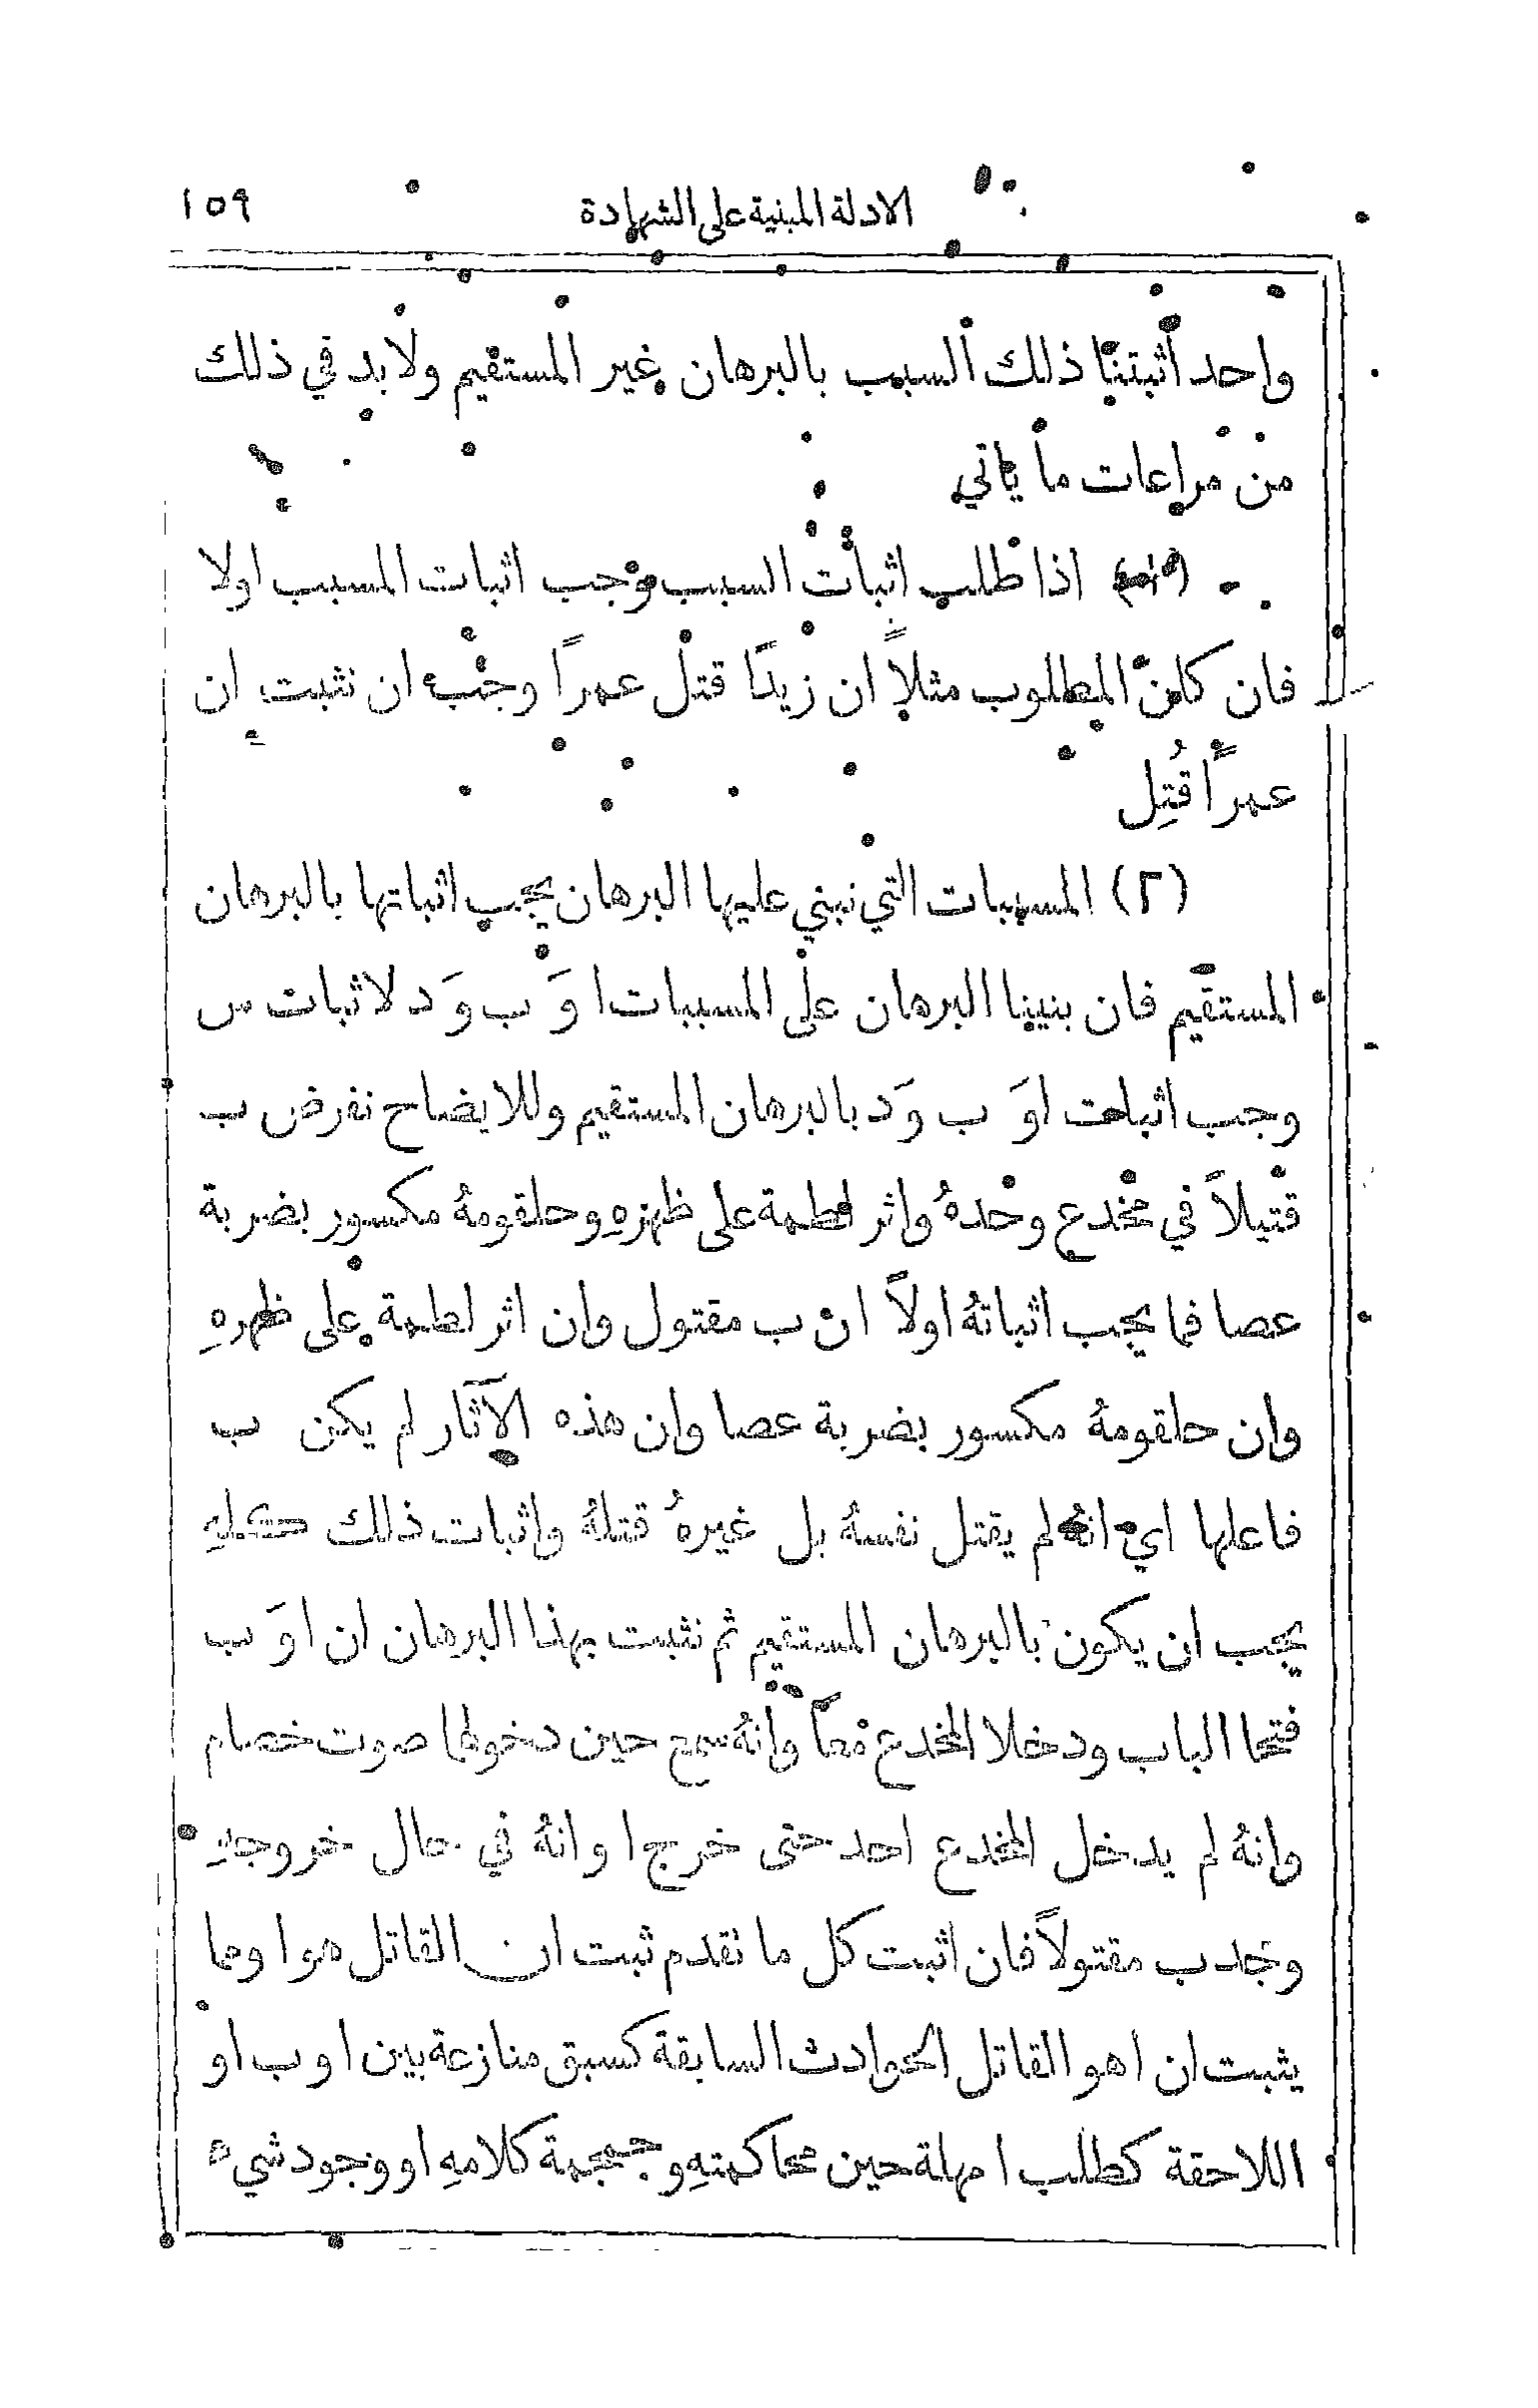 الادلة المبنية على الشهادة ١٥٩
واحد أثبتنا ذلك السبب بالبرهان غير المستقيم ولا بد في ذلك
من مراعات ما يأتي
اذا طلب اثبات السبب وجب اثبات المسبب اولا
فان كان المطلوب مثلاً ان زيدًا قتل عمرًا وجب ان نثبت ان
عمرًا قُتِل
(٢) المسببات التي نبني عليها البرهان يجب اثباتها بالبرهان
المستقيم فان بنينا البرهان على المسببات ا وَ ب وَ د لاثبات س
وجب اثبات ا وَ ب وَ د بالبرهان المستقيم وللايضاح نفرض ب
قتيلاً في مخدع وحدهُ واثر لطمة على ظهرهِ وحلقومهُ مكسور بضربة
عصا فما يجب اثباتهُ اولاً ان ب مقتول وان اثر لطمة على ظهرهِ
وان حلقومهُ مكسور بضربة عصا وان هذه الآثار لم يكن ب
فاعلها اي انهُ لم يقتل نفسهُ بل غيرهُ قتلهُ واثبات ذلك كلهِ
يجب ان يكون بالبرهان المستقيم ثم نثبت بهذا البرهان ان ا وَ ب
فتحا الباب ودخلا المخدع معاً وانهُ سمع حين دخولها صوت خصام
وانهُ لم يدخل المخدع احد حتى خرج ا وانهُ في حال خروجهِ
وجد ب مقتولاً فان اثبت كل ما نقدم ثبت ان القاتل هو ا ومما
يثبت ان ا هو القاتل الحوادث السابقة كسبق منازعة بين ا و ب او
اللاحقة كطلب ا مهلة حين محاكمتهِ وجمجمة كلامهِ او وجود شيء